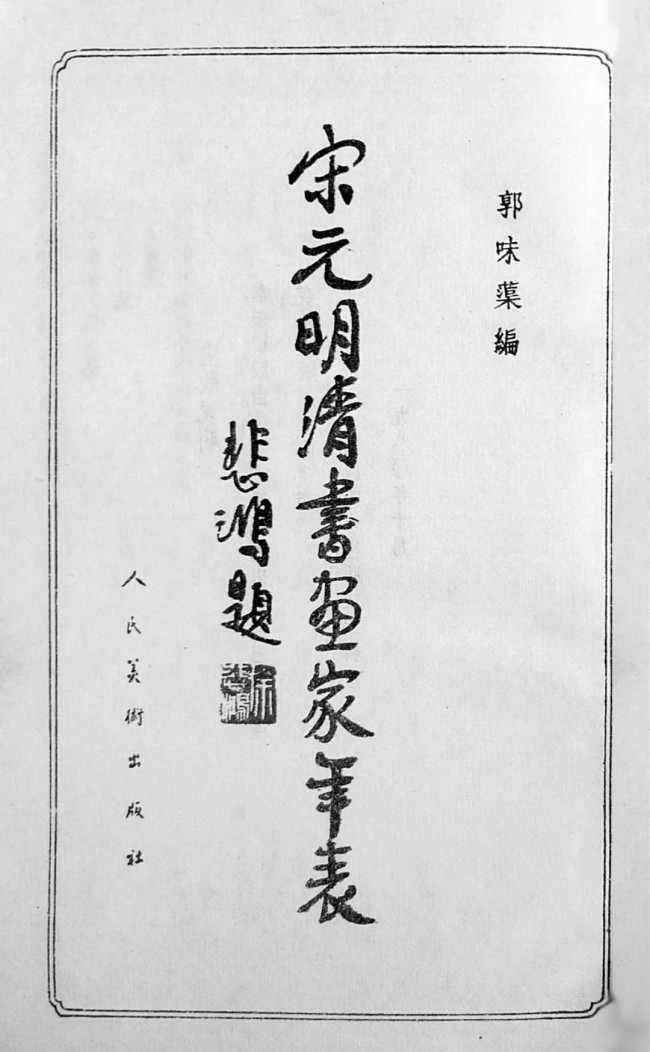 郭味蕖編
宋元明清書畫家年表
悲鴻題
人民美術出版社